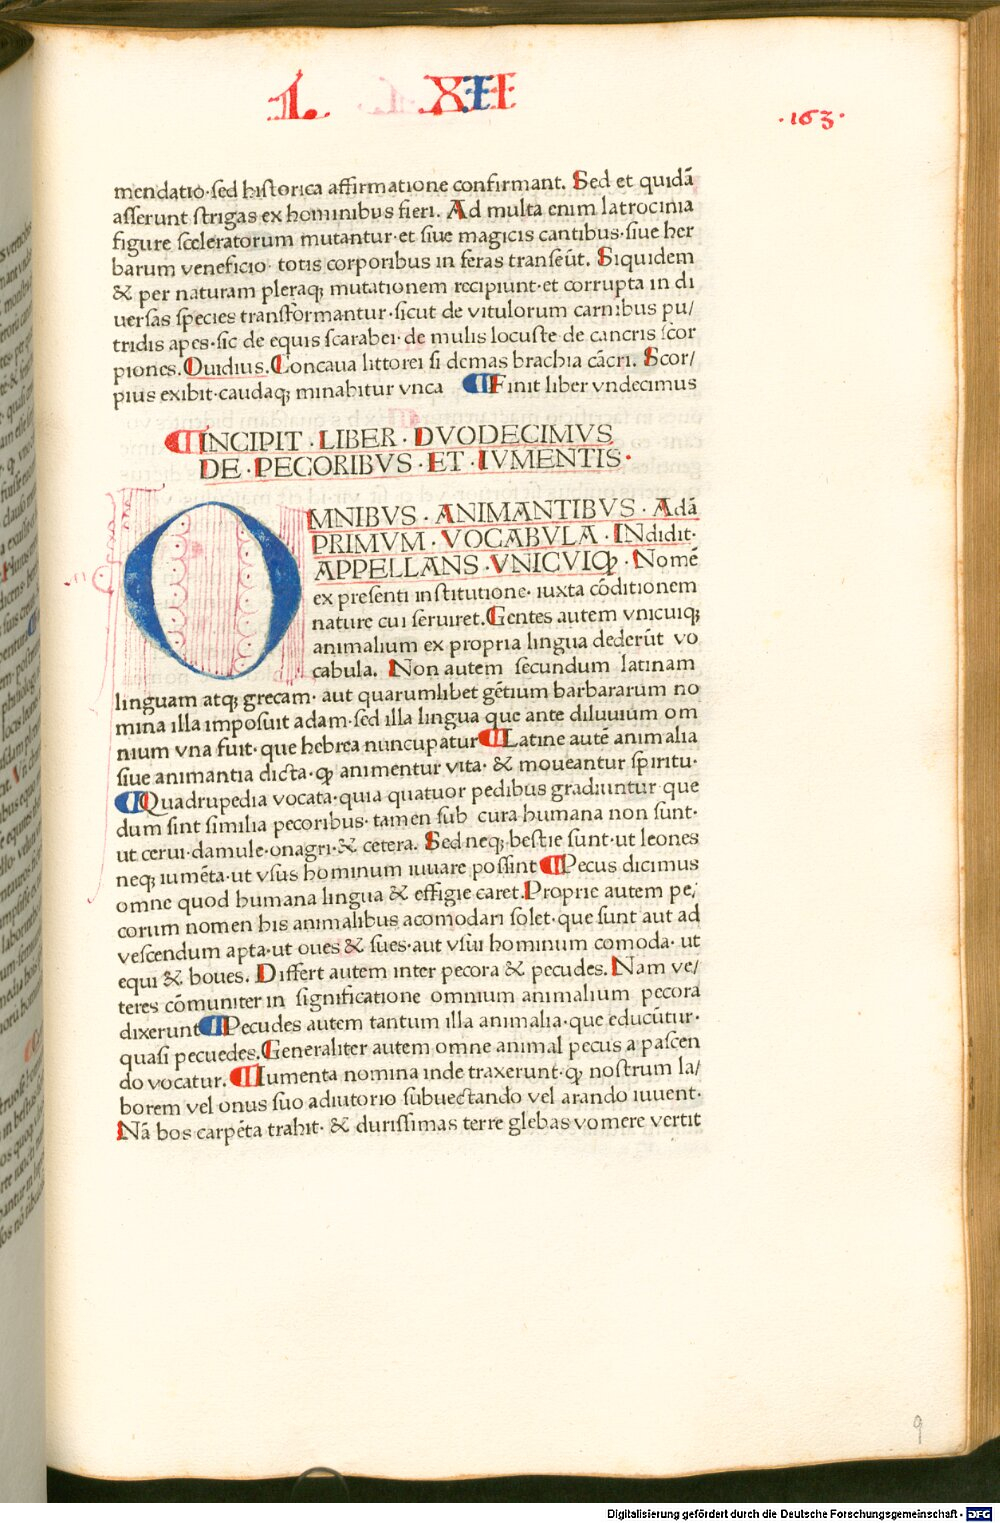 L. XII
·163·
mendatio·sed historica affirmatione confirmant. Sed et quidā
asserunt strigas ex hominibus fieri. Ad multa enim latrocinia
figure sceleratorum mutantur·et siue magicis cantibus·siue her
barum veneficio· totis corporibus in feras transeūt. Siquidem
& per naturam pleraqꝫ mutationem recipiunt·et corrupta in di
uersas species transformantur·sicut de vitulorum carnibus pu/
tridis apes·sic de equis scarabei·de mulis locuste·de cancris scor
piones. Ouidius. Concaua littorei si demas brachia cācri. Scor/
pius exibit·caudaqꝫ minabitur vnca ¶ Finit liber vndecimus
¶ INCIPIT · LIBER · DVODECIMVS
DE · PECORIBVS · ET · IVMENTIS·
OMNIBVS · ANIMANTIBVS · Adā
PRIMVM · VOCABVLA · INdidit·
APPELLANS · VNICVIQꝫ · Nomē
ex presenti institutione· iuxta cōditionem
nature cui seruiret. Gentes autem vnicuiqꝫ
animalium ex propria lingua dederūt vo
cabula. Non autem secundum latinam
linguam atqꝫ grecam· aut quarumlibet gētium barbararum no
mina illa imposuit adam·sed illa lingua que ante diluuium om
nium vna fuit· que hebrea nuncupatur ¶ Latine autē animalia
siue animantia dicta·qꝙ animentur vita· & moueantur spiritu·
¶ Quadrupedia vocata·quia quatuor pedibus gradiuntur·que
dum sint similia pecoribus·tamen sub cura humana non sunt·
ut cerui·damule·onagri·& cetera. Sed neqꝫ bestie sunt·ut leones
neqꝫ iumēta·ut vsus hominum iuuare possint ¶ Pecus dicimus
omne quod humana lingua & effigie caret. Proprie autem pe/
corum nomen his animalibus acomodari solet·que sunt aut ad
vescendum apta·ut oues & sues·aut vsui hominum comoda· ut
equi & boues. Differt autem inter pecora & pecudes. Nam ve/
teres cōmuniter in significatione omnium animalium pecora
dixerunt ¶ Pecudes autem tantum illa animalia·que educūtur·
quasi pecuedes. Generaliter autem omne animal pecus a pascen
do vocatur. ¶ Iumenta nomina inde traxerunt·qꝙ nostrum la/
borem vel onus suo adiutorio subuectando vel arando iuuent·
Nā bos carpēta trahit· & durissimas terre glebas vomere vertit
9
Digitalisierung gefördert durch die Deutsche Forschungsgemeinschaft - DFG